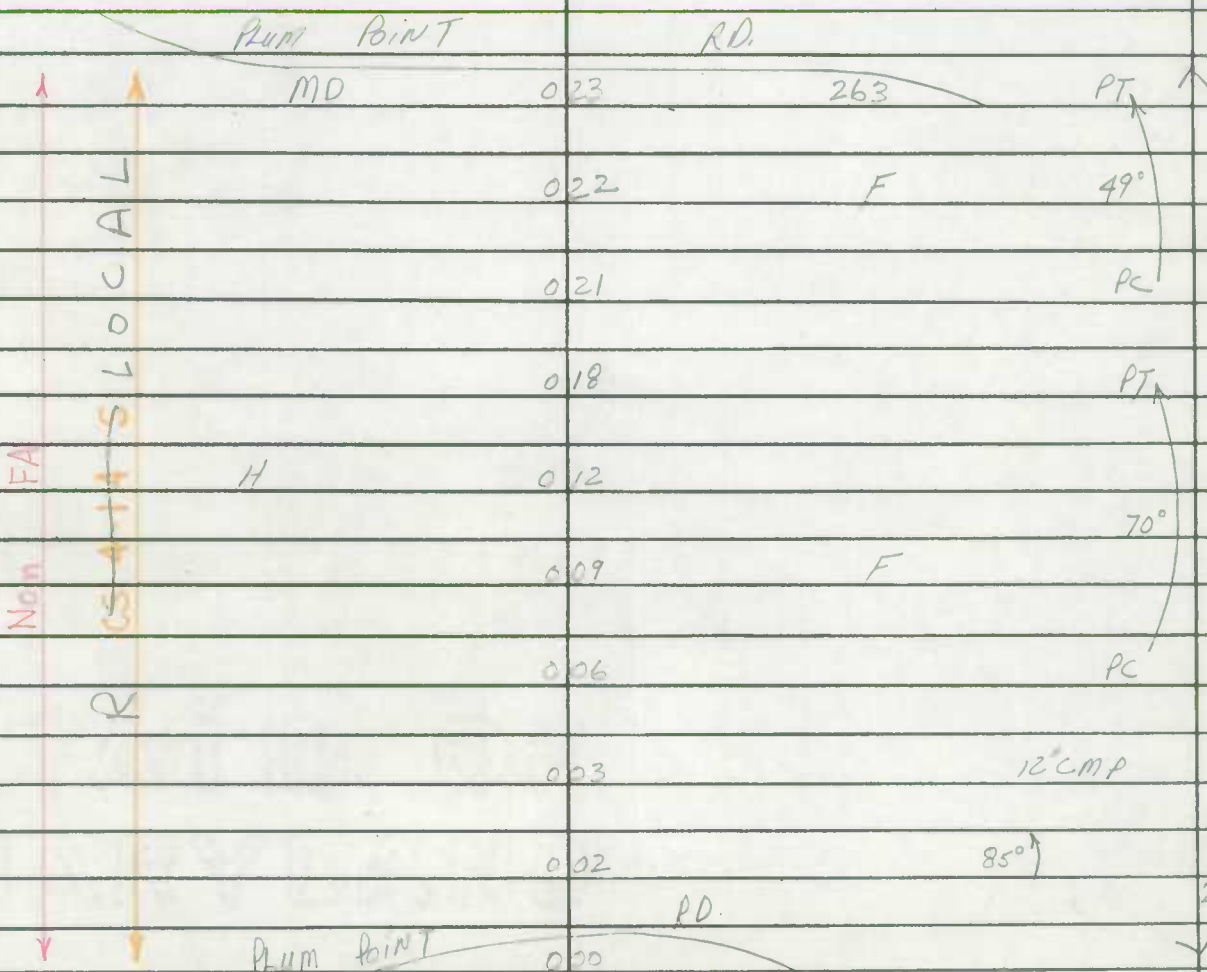 PLUM POINT RD.
MD 0.23 263 PT
0.22 F 49°
0.21 PC
0.18 PT
H 0.12
70°
0.09 F
0.06 PC
0.03 12" CMP
0.02 85°
RD.
PLUM POINT 0.00
Non FA
R LOCAL